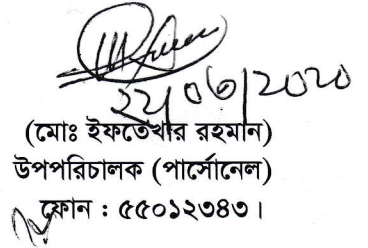 ২২/০৬/২০২০
(মোঃ ইফতেখার রহমান)
উপপরিচালক (পার্সোনেল)
ফোন : ৫৫০১২৩৪৩।